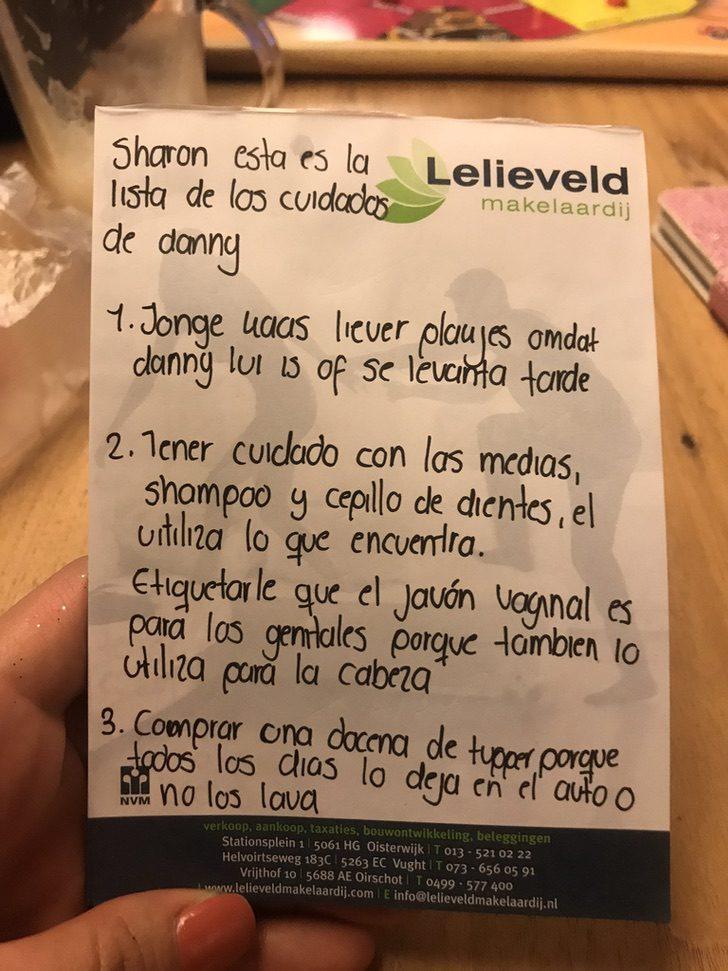 Sharon esta es la
lista de los cuidados
de danny
Lelieveld
makelaardij
1. Jonge kaas liever plakjes omdat
danny lui is of se levanta tarde
2. Tener cuidado con las medias,
shampoo y cepillo de dientes, el
utiliza lo que encuentra.
Etiquetarle que el javón vaginal es
para los genitales porque tambien lo
utiliza para la cabeza
3. Comprar una docena de tupper porque
todos los dias lo deja en el auto o
no los lava
NVM
verkoop, aankoop, taxaties, bouwontwikkeling, beleggingen
Stationsplein 1 | 5061 HG Oisterwijk | T 013 - 521 02 22
Helvoirtseweg 183C | 5263 EC Vught | T 073 - 656 05 91
Vrijthof 10 | 5688 AE Oirschot | T 0499 - 577 400
I www.lelieveldmakelaardij.com | E info@lelieveldmakelaardij.nl